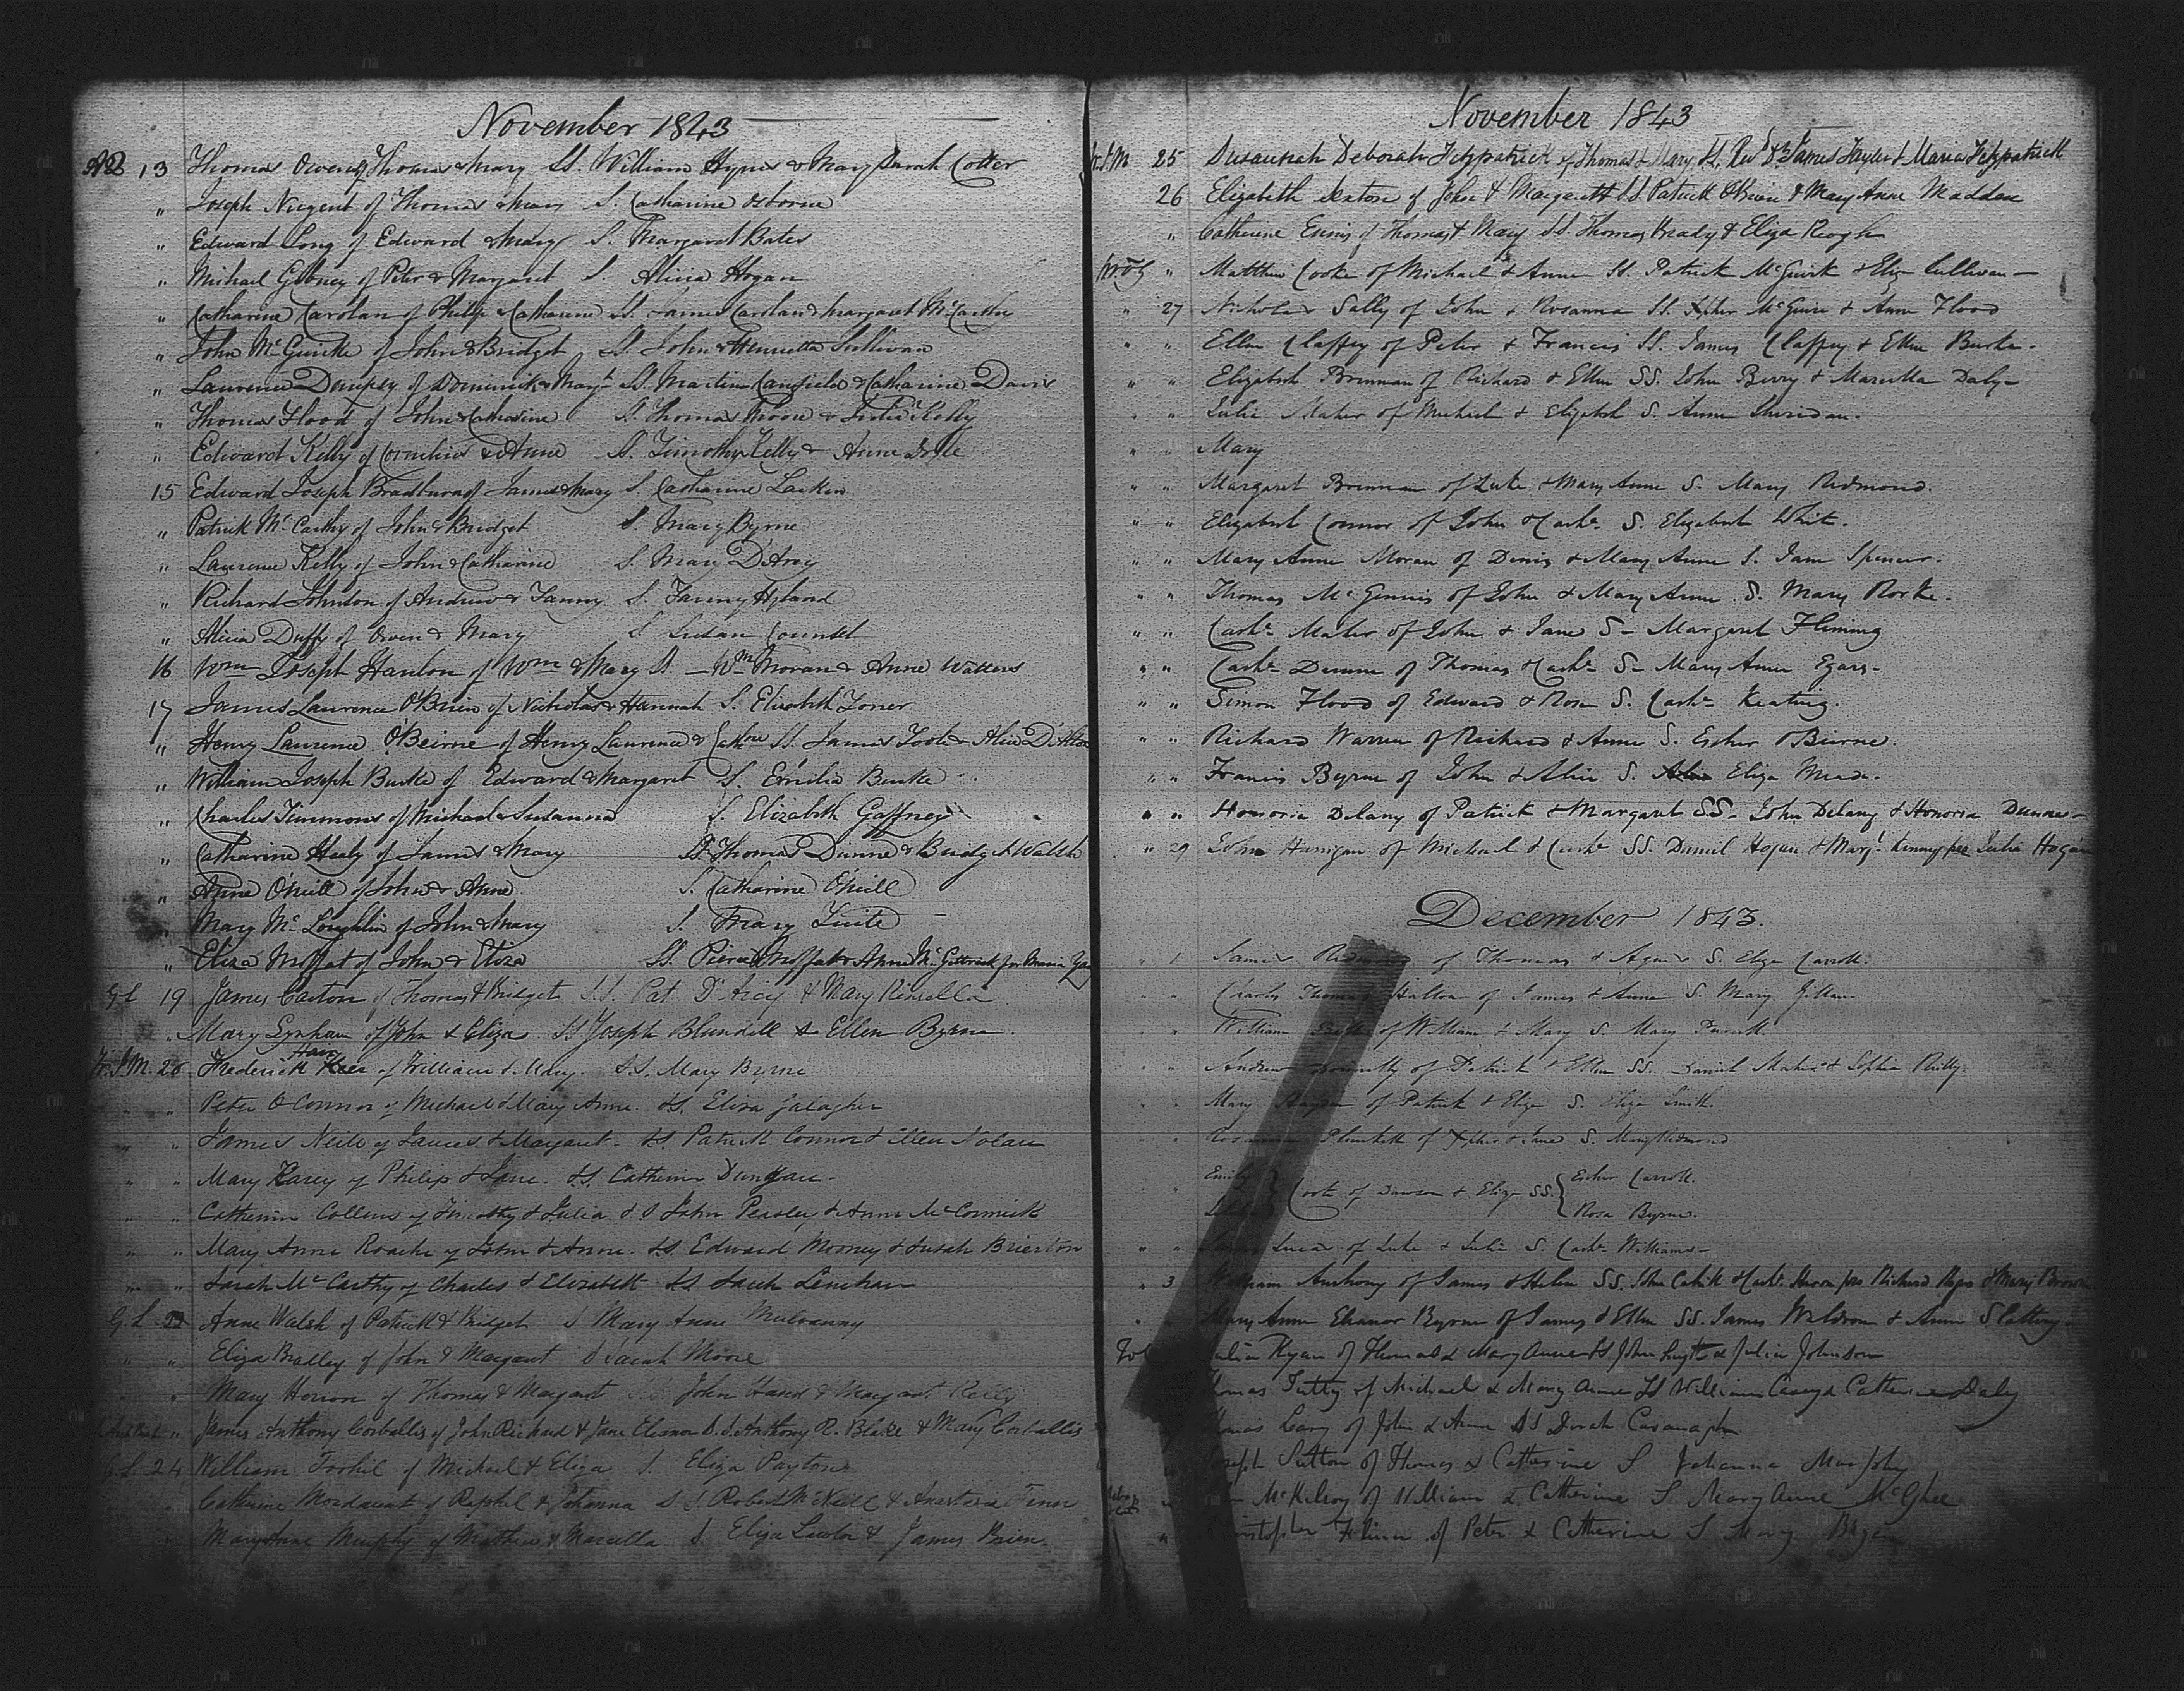 November 1843
13 Thomas Owens of Thomas & Mary SS. William Hynes & Mary Sarah Cotter
" Joseph Nugent of Thomas & Mary S. Catharine Osborne
" Edward Long of Edward & Mary S. Margaret Bates
" Michael Gibney of Peter & Margaret S. Alicia Hogan
" Catharine Carolan of Philip & Catharine SS. James Carolan & Margaret McCarthy
" John McGuirke of John & Bridget SS. John & Henrietta Sullivan
" Laurence Dempsey of Dominick & Margt SS. Martin Canfield & Catharine Davis
" Thomas Flood of John & Catharine SS. Thomas Moore & Julia Kelly
" Edward Kelly of Cornelius & Anne SS. Timothy Kelly & Anne
15 Edward Joseph Bradburn of James & Mary S. Catharine Larkin
" Patrick McCarthy of John & Bridget S. Mary Byrne
" Laurence Kelly of John & Catharine S. Mary D'Arcy
" Richard Johnston of Andrew & Fanny S. Fanny Hyland
" Alicia Duffy of Owen & Mary S. Susan Counsel
16 Wm Joseph Hanlon of Wm & Mary SS. Wm Moran & Anne Watters
17 James Laurence O'Brien of Nicholas & Hannah S. Elizabeth Toner
" Henry Laurence O'Beirne of Henry Laurence & Cathne SS. James Toole & Alice D'Alton
" William Joseph Burke of Edward & Margaret S. Emilia Burke
" Charles Timmons of Michael & Susanna S. Elizabeth Gaffney
" Catharine Healy of James & Mary SS. Thomas Dunne & Bridget Walsh
" Anne O'Neill of John & Anne S. Catharine O'Neill
" Mary McLoughlin of John & Mary S. Mary Tuite
" Eliza Moffat of John & Eliza SS. Pierce Moffat & Anne McGettrick for Maria
G.L 19 James Caston of Thomas & Bridget SS. Pat D'Arcy & Mary Kinsella
" Mary Lynham of John & Eliza SS Joseph Blundell & Ellen Byrne
26 Frederick of William & Mary. S.S. Mary Byrne
" " Peter O'Connor of Michael & Mary Anne. SS. Eliza Galagher
" " James Neill of James & Margaret. SS. Patrick Connor & Ellen Nolan
" " Mary Karey of Philip & Jane. SS. Catherine Dungan.
" " Catherine Collens of Timothy & Julia SS John Peasley & Anne McCormick
" " Mary Anne Roache of John & Anne. SS. Edward Mooney & Susah Brierton
" " Sarah McCarthy of Charles & Elizabeth SS Sarah Lenehan
G.L Anne Walsh of Patrick & Bridget S Mary Anne Mulvanny
" " Eliza Bradley of John & Margaret S Sarah Moore
" Mary of Thomas & Margaret SS John & Margaret Kelly
" James Anthony Corballis of John Richard & Jane Eleanor S.S. Anthony R. Blake & Mary Corballis
G.L 24 William of Michael & Eliza S. Eliza Payton
" Catherine Mordaunt of Raphel & Johanna S.S. Robert McNeill & Anastasia
Mary Anne Murphy of Mathew & Marcella S. Eliza Lawlor & James Brien
November 1843
25 Susannah Deborah Fitzpatrick of Thomas & Mary SS. Revd Dr James Taylor & Maria Fitzpatrick
26 Elizabeth Sexton of John & Margaret SS Patrick O'Brien & Mary Anne Madden
" Catherine Ennis of Thomas & Mary SS. Thomas Brady & Eliza Keogh
" Matthew Cooke of Michael & Anne SS. Patrick McGuirk & Eliz Sullivan
" 27 Nicholas Sally of John & Rosanna SS. Xpher McGuire & Anne Flood
" " Ellen Claffey of Peter & Francis SS. James Claffey & Ellen Burke.
" " Elizabeth Brennan of Richard & Ellen SS. John Berry & Marcella Daly
" " Julia Maher of Michael & Elizabeth S. Anne Sheridan.
" " Mary
" " Margaret Brennan of Luke & Mary Anne S. Mary Redmond.
" " Elizabeth Connor of John & Cathe S. Elizabeth White.
" " Mary Anne Moran of Denis & Mary Anne S. Jane Spencer.
" " Thomas McGennis of John & Mary Anne S. Mary Rorke.
" " Cathe Maher of John & Jane S. Margaret Fleming
" " Cathe Dunne of Thomas & Cathe S. Mary Anne Egars.
" " Simon Flood of Edward & Rose S. Cathe Keating.
" " Richard Warren of Richard & Anne S. Esther O'Beirne.
" " Francis Byrne of John & Alice S. Eliza Meade.
" " Honoria Delany of Patrick & Margaret SS. John Delany & Honoria Dunne
" 29 Hannigan of Michael & Cathe SS. Daniel Hogan & Margt Kinny per Julia Hogan
December 1843.
" 1 James of Thomas & Agnes S. Eliza Carroll.
" " Charles Thomas Halton of James & Anne S. Mary
" " William of William & Mary S. Mary Purcell
" " Andrew of Patrick & Ellen SS. Daniel & Sophia Reilly.
" " Mary of Patrick & Eliza S. Eliza Smith.
" " Plunkett of Xpher & Jane S. Mary Redmond
" " Emily } Coote of Dawson & Eliza SS. { Esther Carroll.
{ Rosa Byrne.
" " Lucas of Luke & Julia S. Cathe Williams
" 3 William Anthony of James & Helen SS. John & Cathe pro Richard & Mary Brown
" Mary Anne Eleanor Byrne of James & Ellen SS. James Waldron & Anne Slattery
Julia Ryan of Thomas & Mary Anne SS John & Julia Johnson
Thomas Tutty of Michael & Mary Anne SS William Casey & Catherine Daly
Thomas of John & Anne SS Cavanagh
Joseph Sutton of Thomas & Catherine S Johanna Murphy
McKilroy of William & Catherine S Mary Anne McGhee
Christopher of Peter & Catherine S Mary